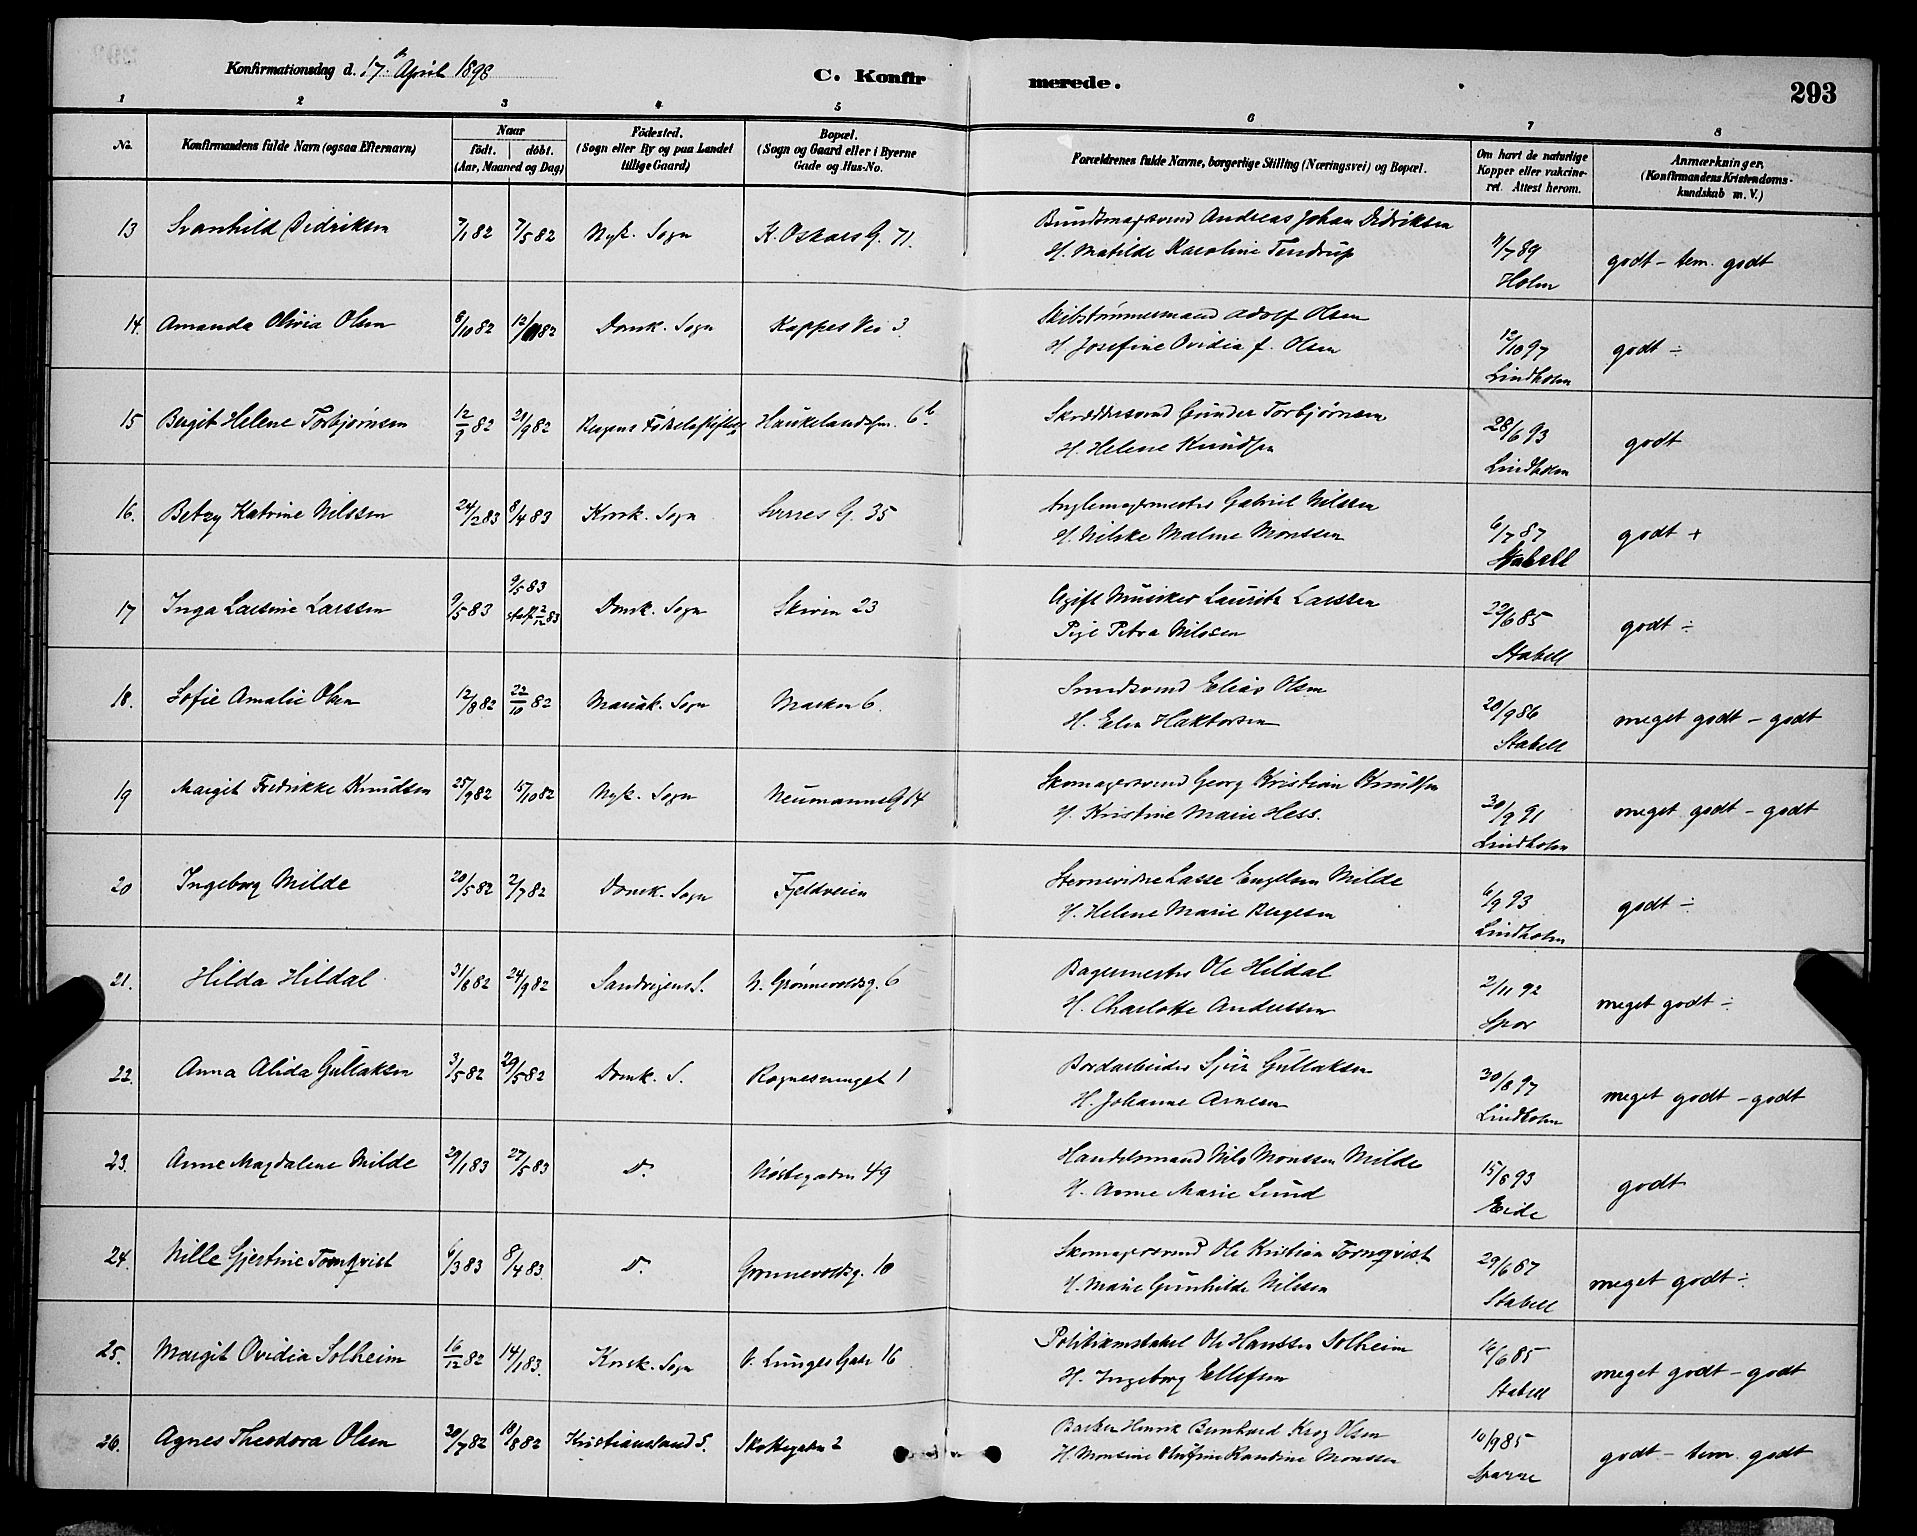 Konfirmationsdag d. 17. April 1898
C. Konfir merede.
293
1 2 3 4 5 6 7 8
No. Konfirmandens fulde Navn (ogsaa Efternavn) Naar födt. döbt. (Aar, Maaned og Dag) Födested. (Sogn eller By og paa Landet tillige Gaard) Bopæl. (Sogn og Gaard eller i Byerne Gade og Hus-No. Forældrenes fulde Navne, borgerlige Stilling (Næringsvei) og Bopæl. Om havt de naturlige Kopper eller vakcineret. Attest herom. Anmærkninger. (Konfirmandens Kristendomskundskab m. V.)
13 Svanhild Didriksen 7/1 82 7/5 82 Nyk. Sogn K. Oskars G. 71. Buntmagersvend Andreas Johan Didriksen
H. Matilde Karoline Tendrup 11/7 89 Holm godt - tem. godt
14. Amanda Olivia Olsen 8/10 82 12/11 82 Domk. Sogn Kappes Vei 3. Skibstømmermand Adolf Olsen
H. Josefine Ovidia f. Olsen 12/10 97 Lindholm godt ÷
15 Bergit Helene Torbjørnsen 12/9 82 21/9 82 Bergens Fødselsstiftelse Haukelandsv. 6 b. Skræddersvend Gunder Torbjørnsen
H. Helene Knudsen 28/6 93 Lindholm godt
16. Betzy Katrine Nilssen 24/2 83 8/4 83 Korsk. Sogn Sverres G. 35 Gabriel Nilssen
H. Nilske Maline Monssen 6/7 87 Stabell godt +
17 Inga Larsine Larssen 9/5 83 9/5 83
stadf. 2/12 83 Domk. Sogn Skiven 23 Ugift Musiker Lauritz Larssen
Pige Petra Nilssen 22/6 85 Stabell godt ÷
18. Sofie Amalie Olsen 12/8 82 22/10 82 Mariak. Sogn Marken 6. Smedsvend Elias Olsen
H. Elen Haktorsen 20/9 86 Stabell meget godt - godt
19 Margit Fredrikke Knudsen 25/9 82 15/10 82 Nyk. Sogn Neumanns G 14 Skomagersvend Georg Kristian Knudsen
H. Kristine Marie Hess. 30/9 91 Lindholm meget godt - godt
20 Ingeborg Milde 20/5 82 2/7 82 Domk. Sogn Fjeldveien Lasse Engelsen Milde
H. Helene Marie Bergesen 6/9 93 Lindholm godt ÷
21. Hilda Hildal 31/8 82 24/9 82 Sandvigens S. N. Grønnevoldsg. 6 Bagermester Ole Hildal
H. Charlotte Anderssen 2/11 92 Spor meget godt ÷
22. Anna Alida Gullaksen 3/5 82 29/5 82 Domk. S. Rognesmuget 1 Bordarbeider Sjur Gullaksen
H. Johanne Arnesen 30/8 97 Lindholm meget godt - godt
23. Anne Magdalene Milde 29/1 83 27/5 83 D. Nøstegaden 49 Handelsmand Nils Monssen Milde
H. Anne Marie Lund 15/8 93 Eide godt
24. Nille Gjertine Tornqvist 6/3 83 8/4 83. D. Grønnevoldsg. 10 Skomagersvend Ole Kristian Tornqvist
H. Marie Gunhilde Nilssen 29/6 87 Stabell meget godt ÷
25. Margit Ovidia Solheim 16/12 82 14/1 83. Korsk. Sogn V. Lunges Gade 16 Politikonstabel Ole Hanssen Solheim
H. Ingeborg Ellefsen 16/6 85 Stabell meget godt - godt
26. Agnes Theodora Olsen 20/7 82 18/8 82 Kristianssand S. Skottegaden 2 Henrik Bernhard Krog Olsen
H. Monsine Olufine Randine Monssen 10/9 85 godt - tem. godt